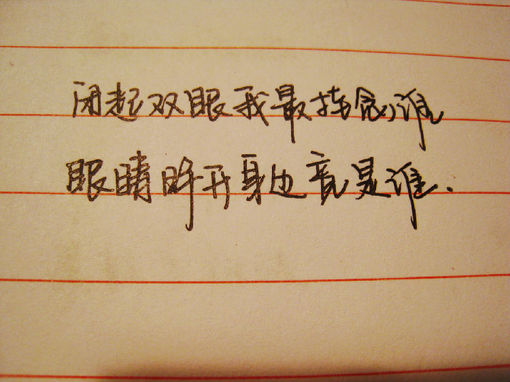 闭起双眼我最挂念谁
眼睛睁开身边竟是谁.